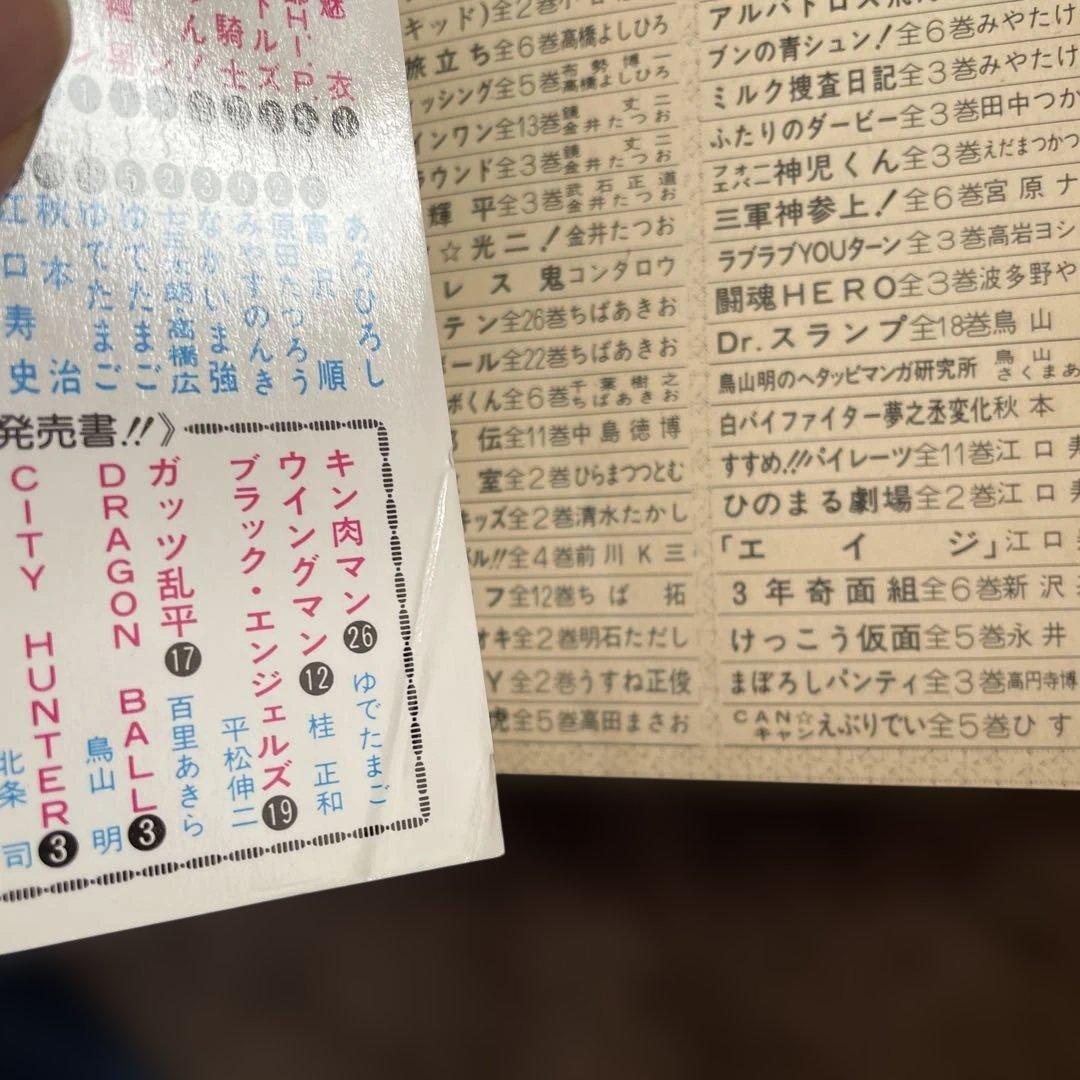 キッド)全2巻
旅立ち全6巻高橋よしひろ
ッシング全5巻布勢博一 高橋よしひろ
インワン全13巻鏡丈二 金井たつお
ラウンド全3巻鏡丈二 金井たつお
輝平全3巻武石正道 金井たつお
☆光二!金井たつお
レス鬼コンタロウ
テン全26巻ちばあきお
ール全22巻ちばあきお
ボくん全6巻千葉樹之 ちばあきお
伝全11巻中島徳博
室全2巻ひらまつつとむ
キッズ全2巻清水たかし
ル!!全4巻前川K三
フ全12巻ちば拓
オキ全2巻明石ただし
Y全2巻うすね正俊
虎全5巻高田まさお
アルバトロス
ブンの青シュン!全6巻みやたけ
ミルク捜査日記全3巻みやたけ
ふたりのダービー全3巻田中つか
フォエバー神児くん全3巻えだまつかつ
三軍神参上!全6巻宮原ナ
ラブラブYOUターン全3巻高岩ヨシ
闘魂HERO全3巻波多野や
Dr.スランプ全18巻鳥山
鳥山明のヘタッピマンガ研究所 鳥山 さくまあ
白バイファイター夢之丞変化秋本
すすめ!!パイレーツ全11巻江口寿
ひのまる劇場全2巻江口寿
「エイジ」江口寿
3年奇面組全6巻新沢
けっこう仮面全5巻永井
まぼろしパンティ全3巻高円寺博
CAN☆キャンえぶりでい全5巻ひす
あろひろし
富沢順
原田たつろう
みやすのんき
なかいま強
高橋広
ゆでたまご
ゆでたまご
秋本治
江口寿史
発売書!!》
キン肉マン26 ゆでたまご
ウイングマン12 桂正和
ブラック・エンジェルズ19 平松伸二
ガッツ乱平17 百里あきら
DRAGON BALL3 鳥山明
CITY HUNTER3 北条司